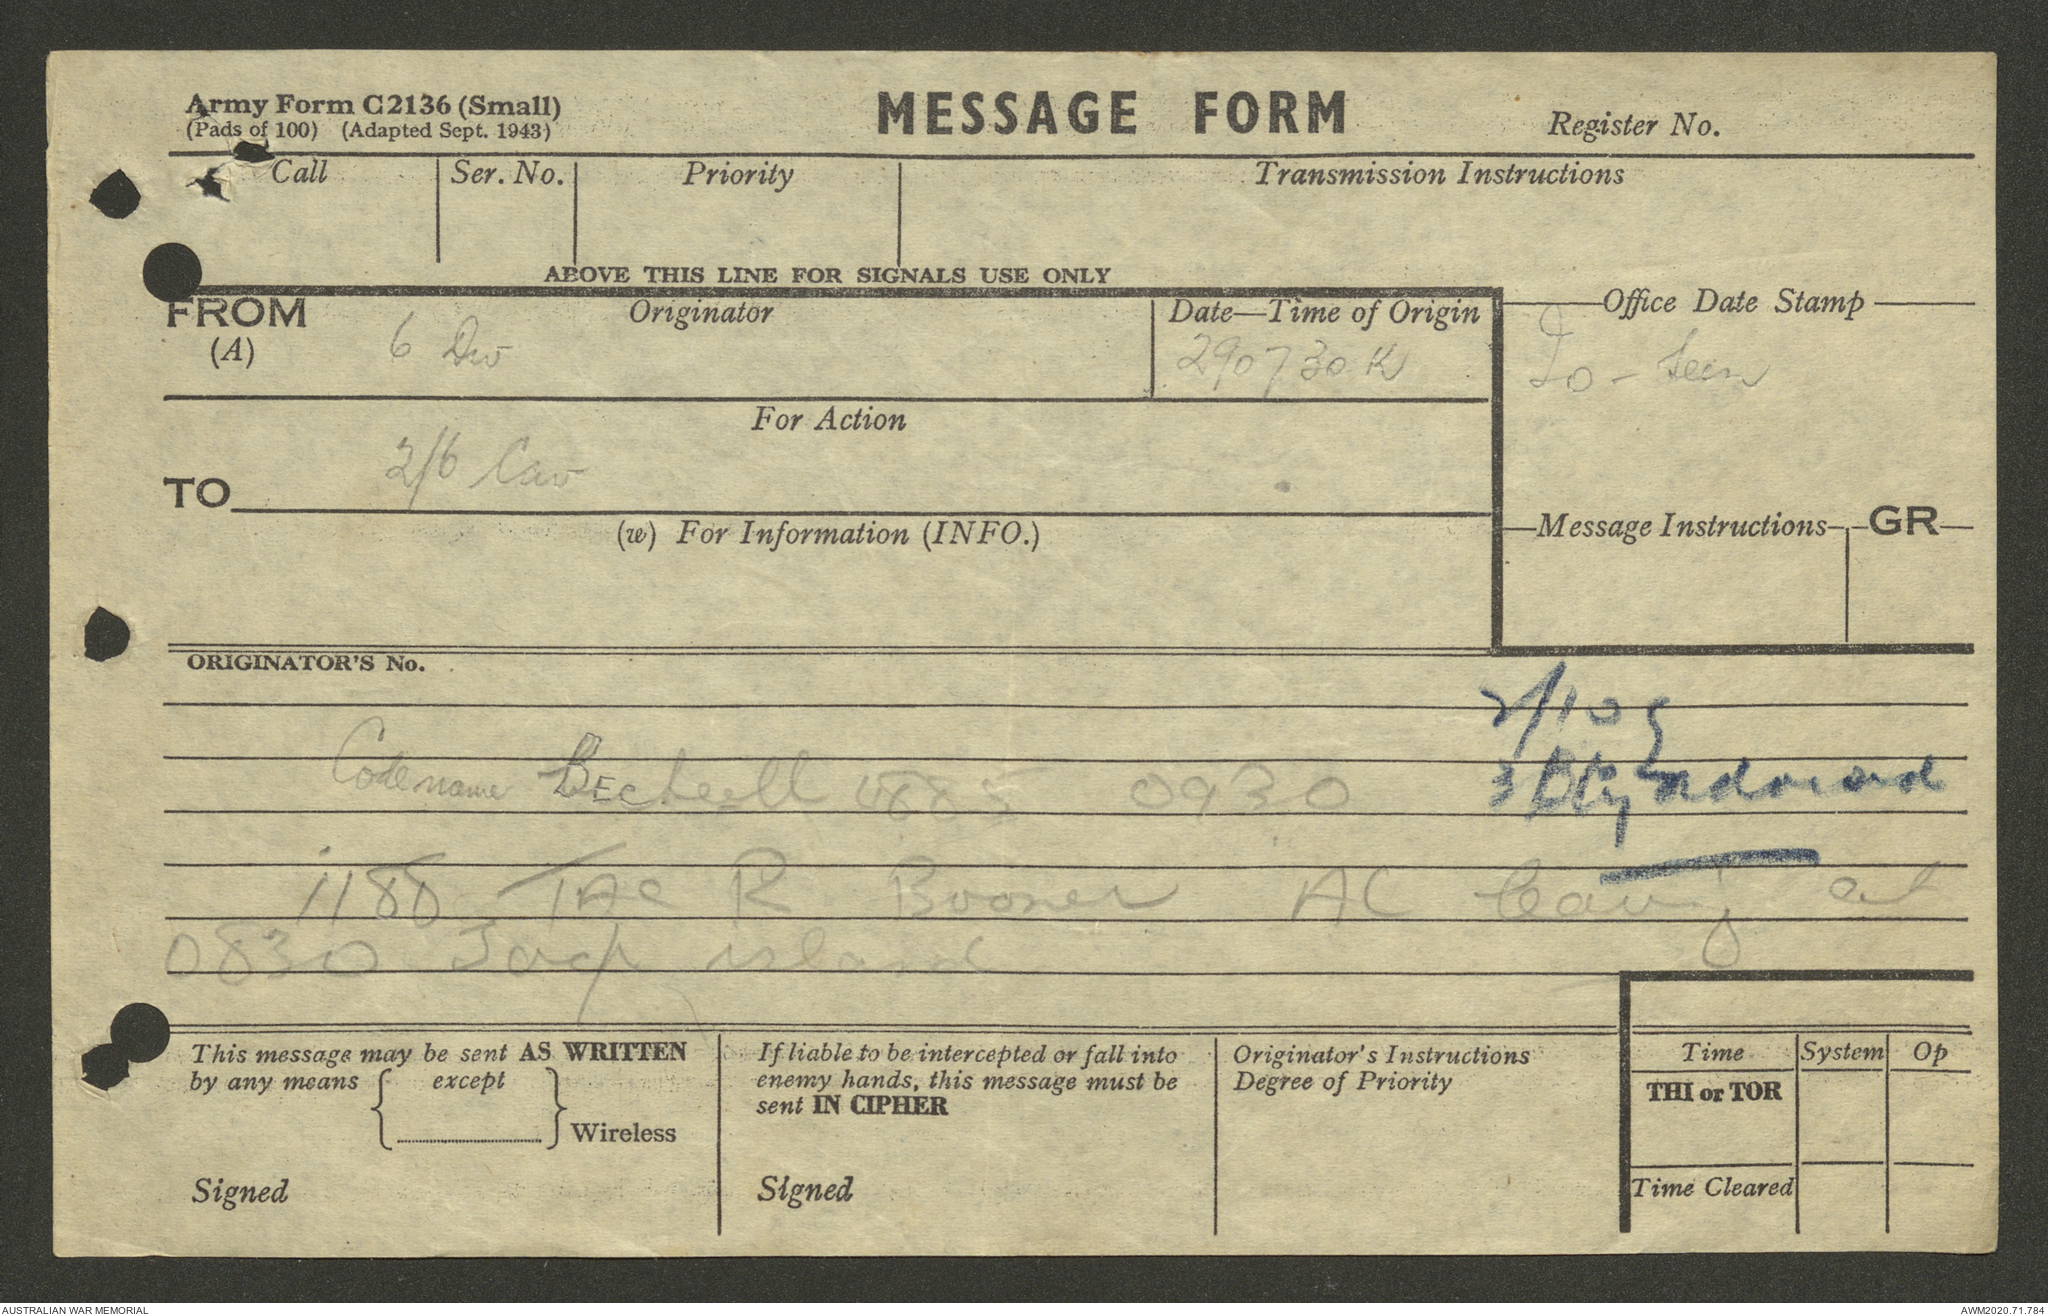 Army Form C2136 (Small)
(Pads of 100) (Adapted Sept. 1943)
MESSAGE FORM
Register No.
Call
Ser. No.
Priority
Transmission Instructions
ABOVE THIS LINE FOR SIGNALS USE ONLY
FROM
(A)
Originator
6 Div
Date—Time of Origin
290730 K
Office Date Stamp
Io -
For Action
TO
2/6 Cav
(w) For Information (INFO.)
Message Instructions
GR
ORIGINATOR'S No.
2/10
3 Bty
Code name 0930
1188 TAC R Boomer AC leaving at
0830 island
This message may be sent AS WRITTEN
by any means { except
} Wireless
Signed
If liable to be intercepted or fall into
enemy hands, this message must be
sent IN CIPHER
Signed
Originator's Instructions
Degree of Priority
Time
System
Op
THI or TOR
Time Cleared
AUSTRALIAN WAR MEMORIAL
AWM2020.71.784